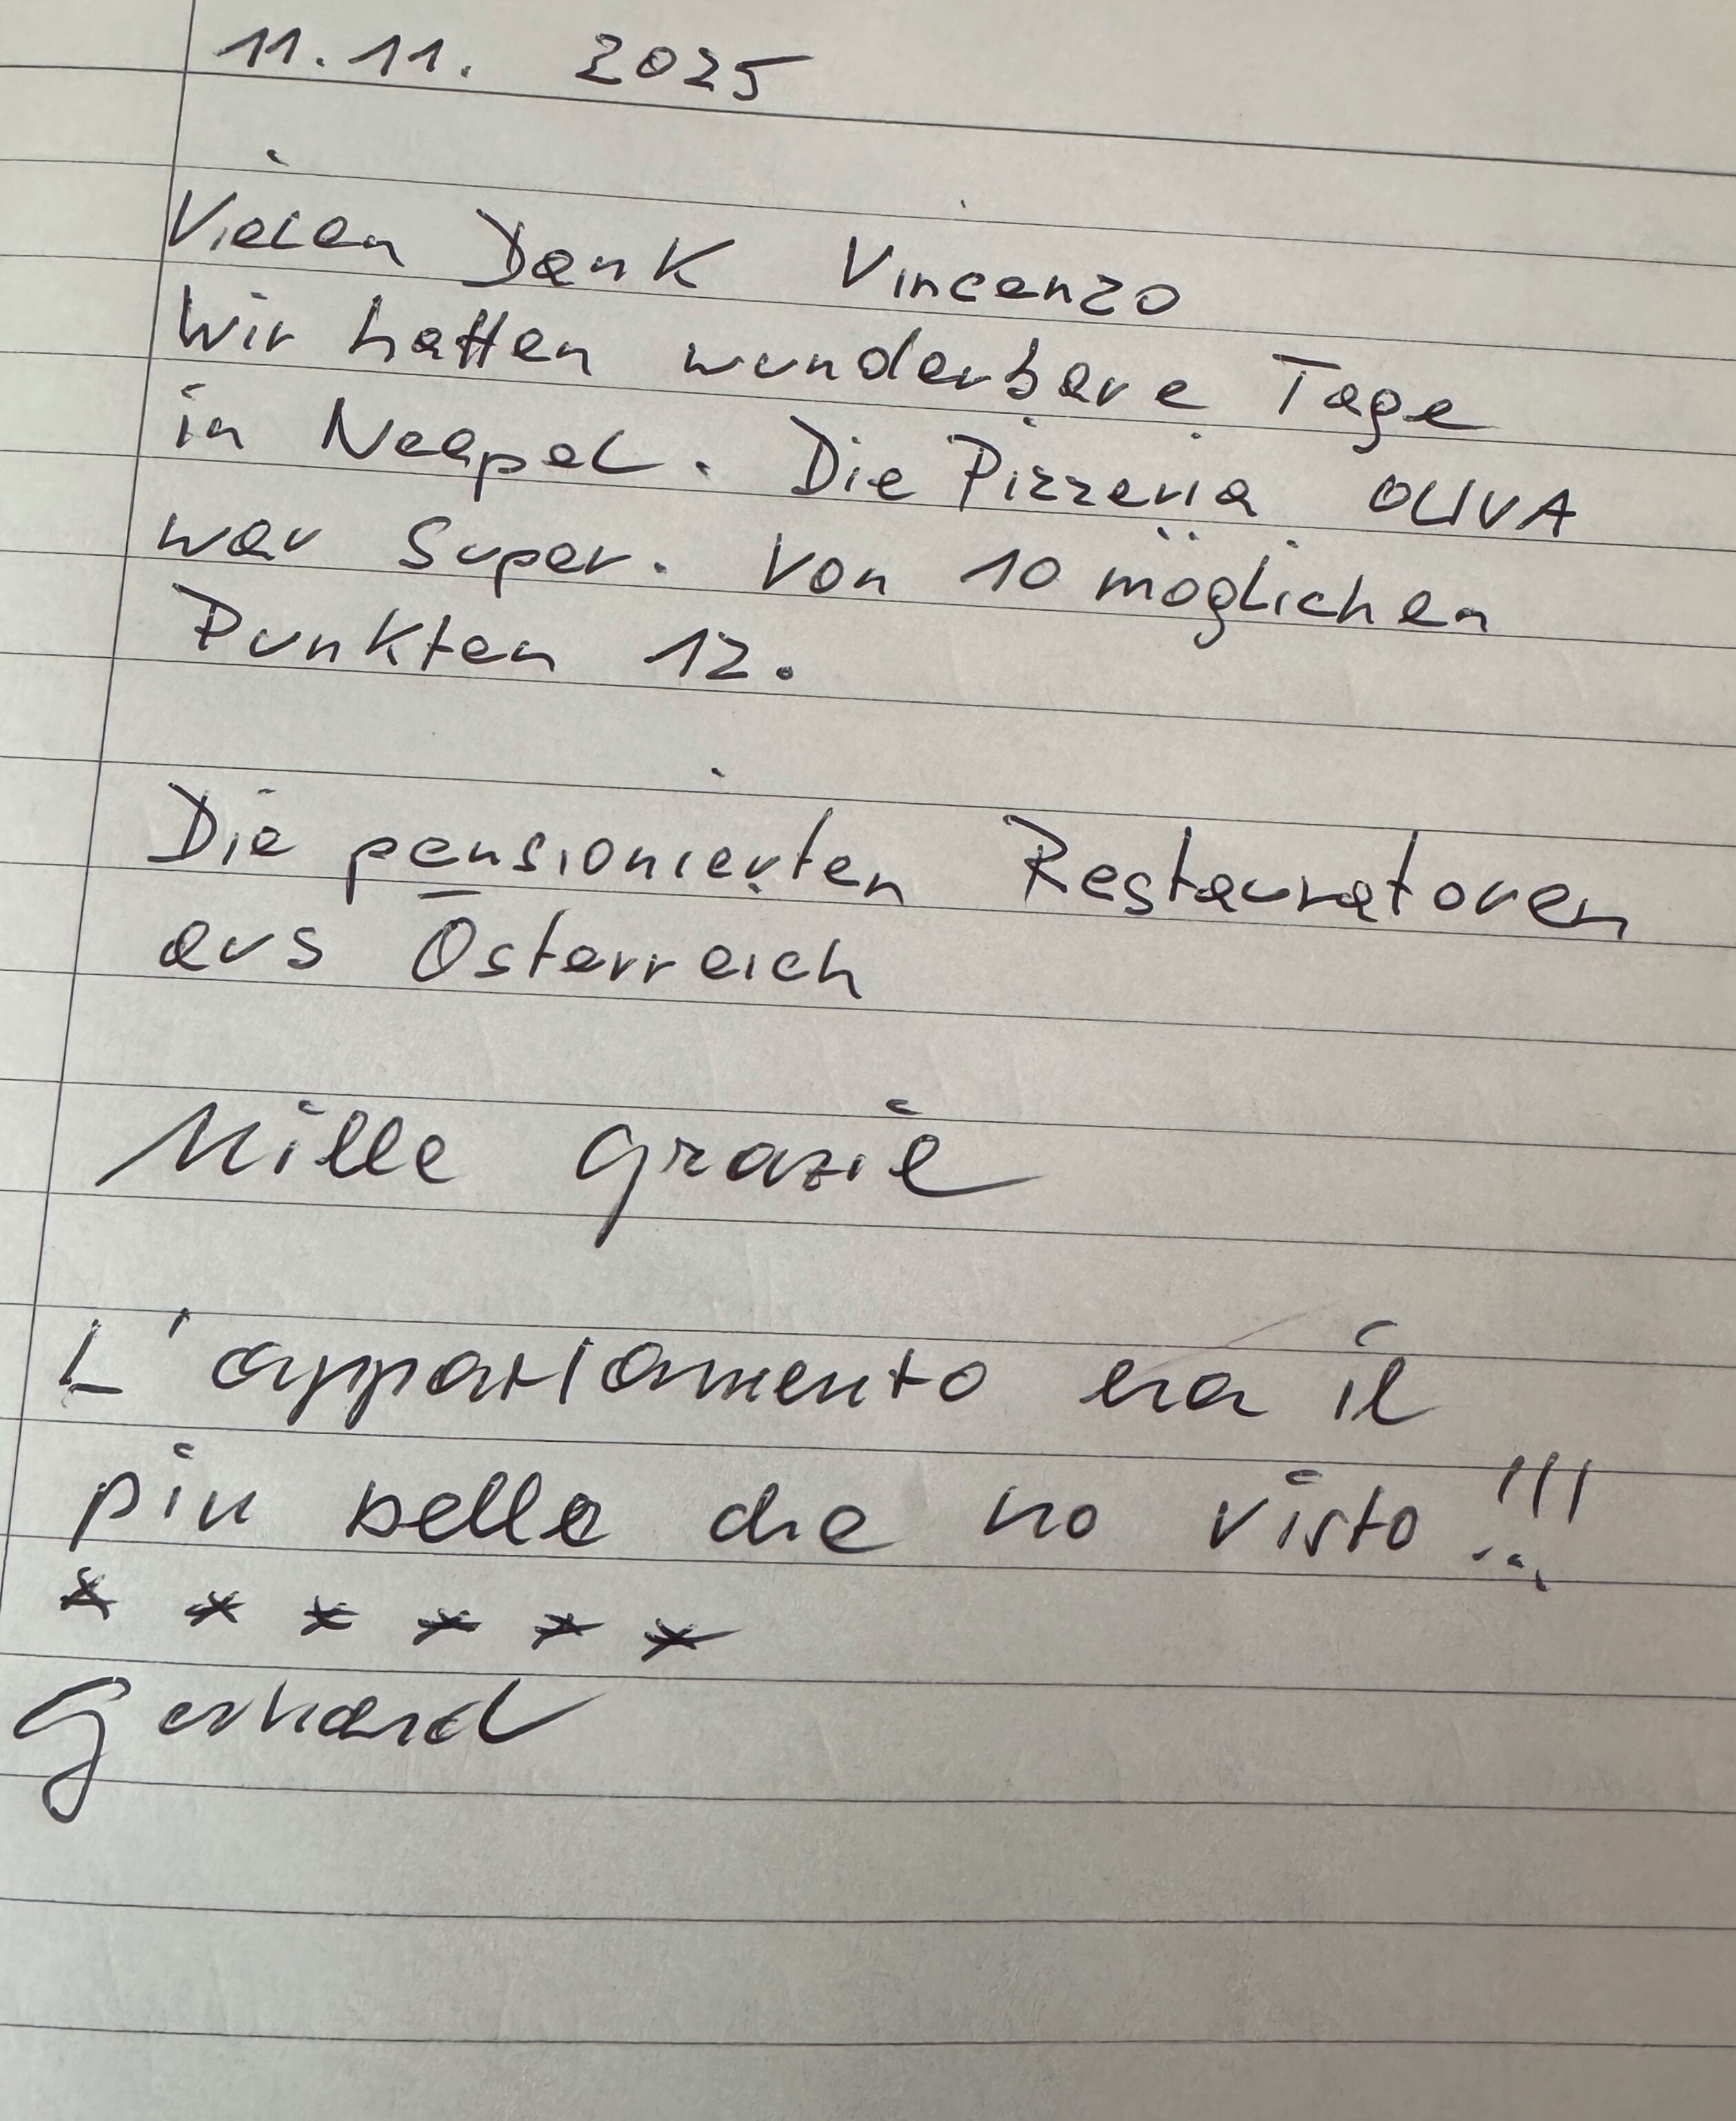 11.11. 2025
Vielen Dank Vincenzo
Wir hatten wunderbare Tage
in Neapel. Die Pizzeria OLIVA
war Super. Von 10 möglichen
Punkten 12.
Die pensionierten Restauratoren
aus Österreich
Mille grazie
L'appartamento era il
piu bello che ho visto!!!
* * * * * *
Gerhard